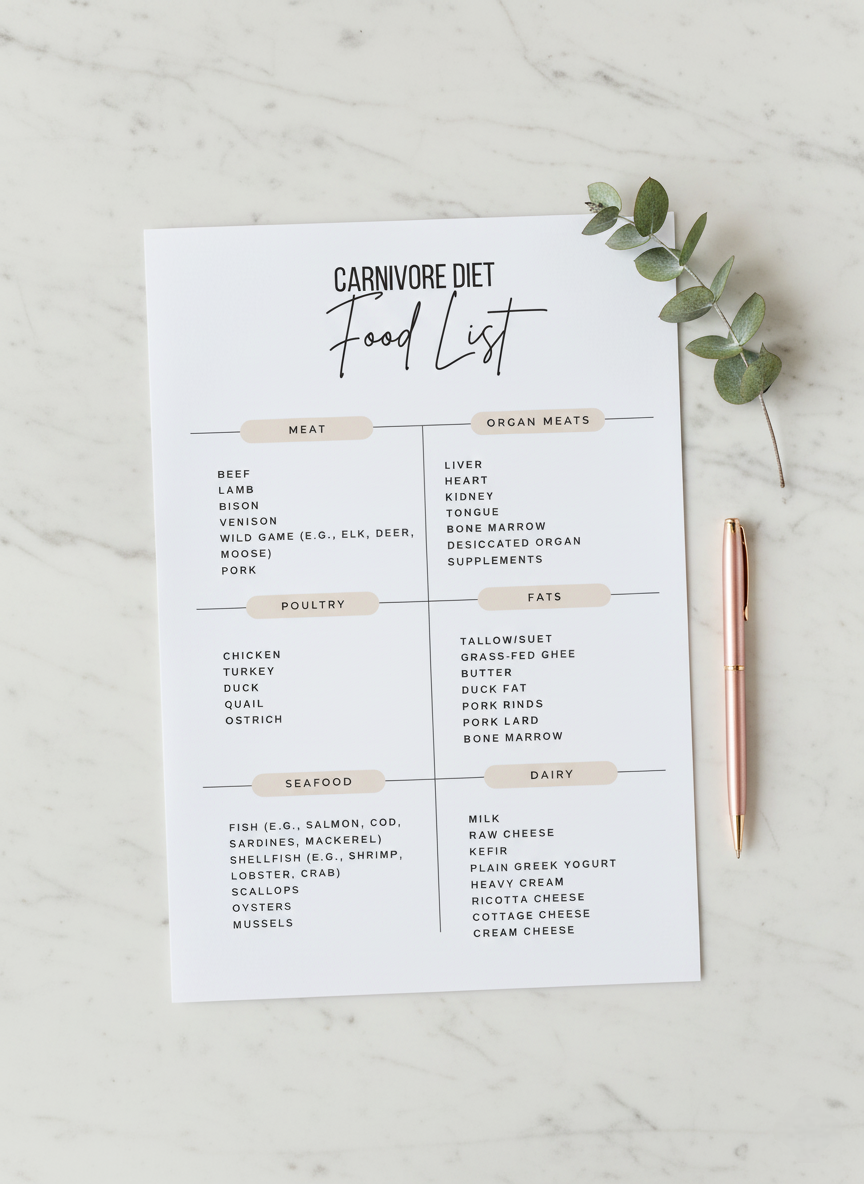 CARNIVORE DIET
Food List
MEAT
BEEF
LAMB
BISON
VENISON
WILD GAME (E.G., ELK, DEER,
MOOSE)
PORK
ORGAN MEATS
LIVER
HEART
KIDNEY
TONGUE
BONE MARROW
DESICCATED ORGAN
SUPPLEMENTS
POULTRY
CHICKEN
TURKEY
DUCK
QUAIL
OSTRICH
FATS
TALLOW/SUET
GRASS-FED GHEE
BUTTER
DUCK FAT
PORK RINDS
PORK LARD
BONE MARROW
SEAFOOD
FISH (E.G., SALMON, COD,
SARDINES, MACKEREL)
SHELLFISH (E.G., SHRIMP,
LOBSTER, CRAB)
SCALLOPS
OYSTERS
MUSSELS
DAIRY
MILK
RAW CHEESE
KEFIR
PLAIN GREEK YOGURT
HEAVY CREAM
RICOTTA CHEESE
COTTAGE CHEESE
CREAM CHEESE